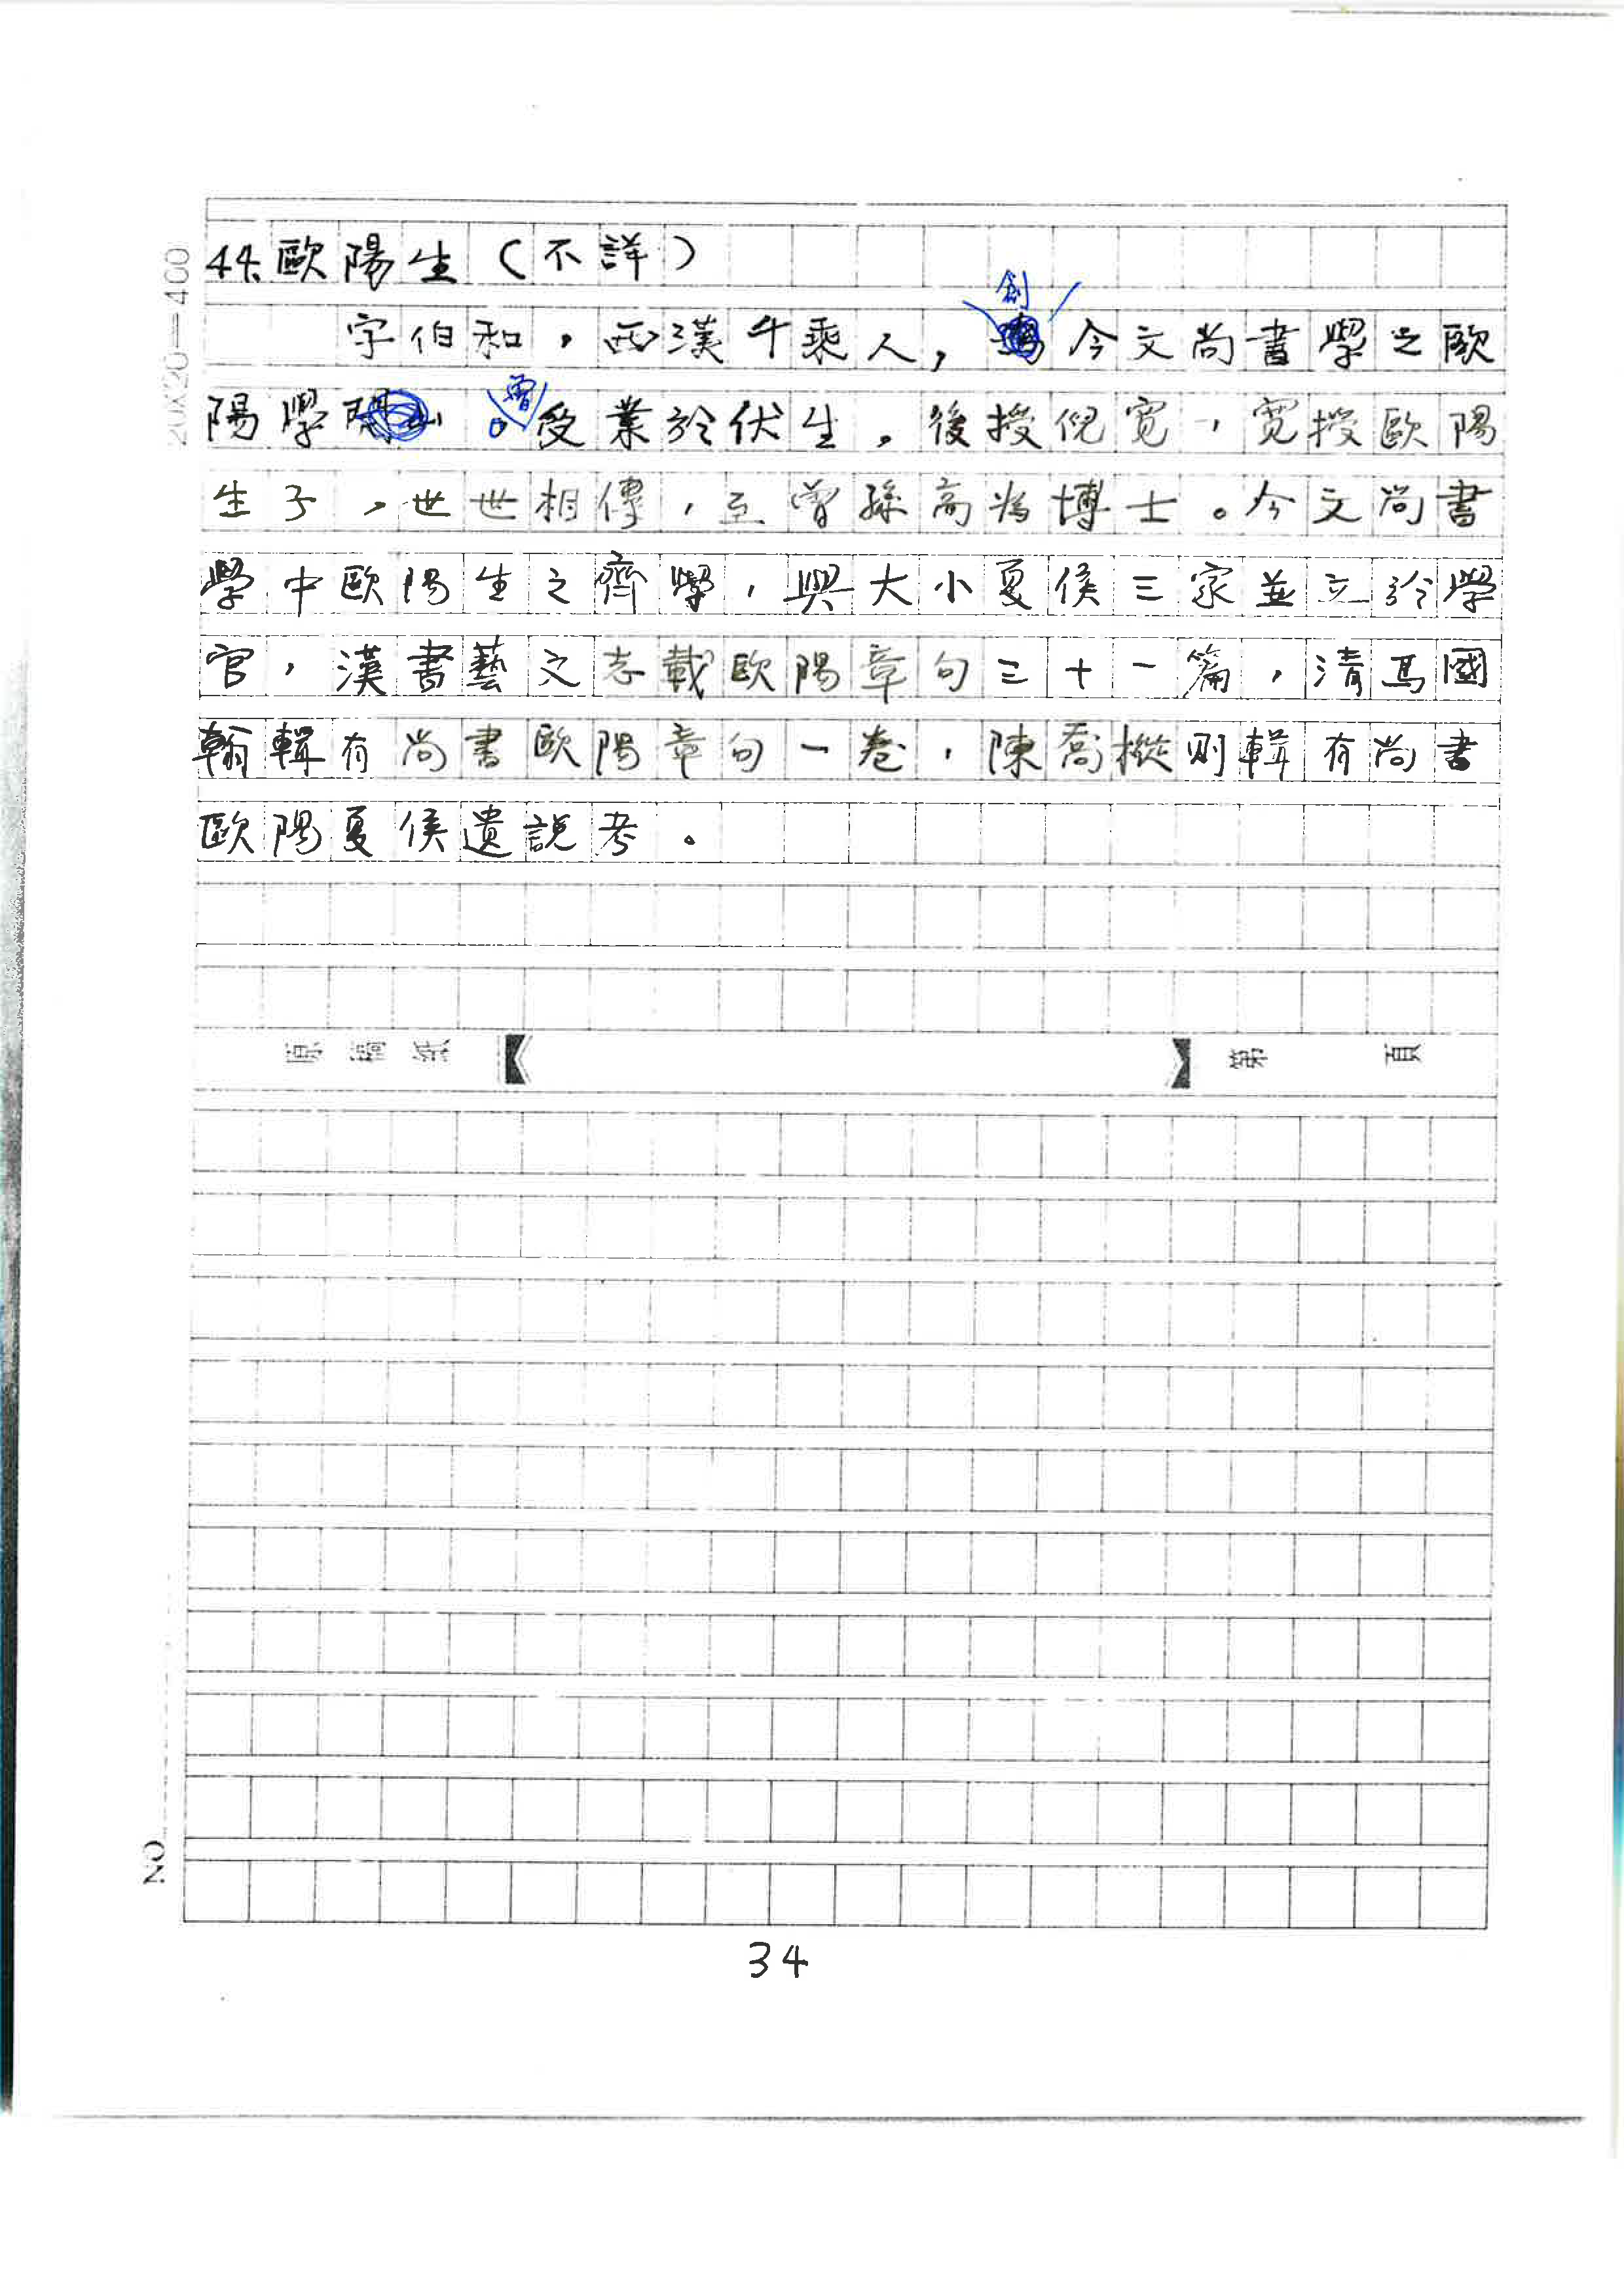 20×20=400
44.歐陽生(不詳)
字伯和,西漢千乘人,創今文尚書學之歐
陽學。曾受業於伏生。後授倪寬,寬授歐陽
生子,世世相傳,至曾孫高為博士。今文尚書
學中歐陽生之齊學,與大小夏侯三家並立於學
官,漢書藝文志載歐陽章句三十一篇,清馬國
翰輯有尚書歐陽章句一卷,陳喬樅則輯有尚書
歐陽夏侯遺說考。
原稿紙 第 頁
NO.
34